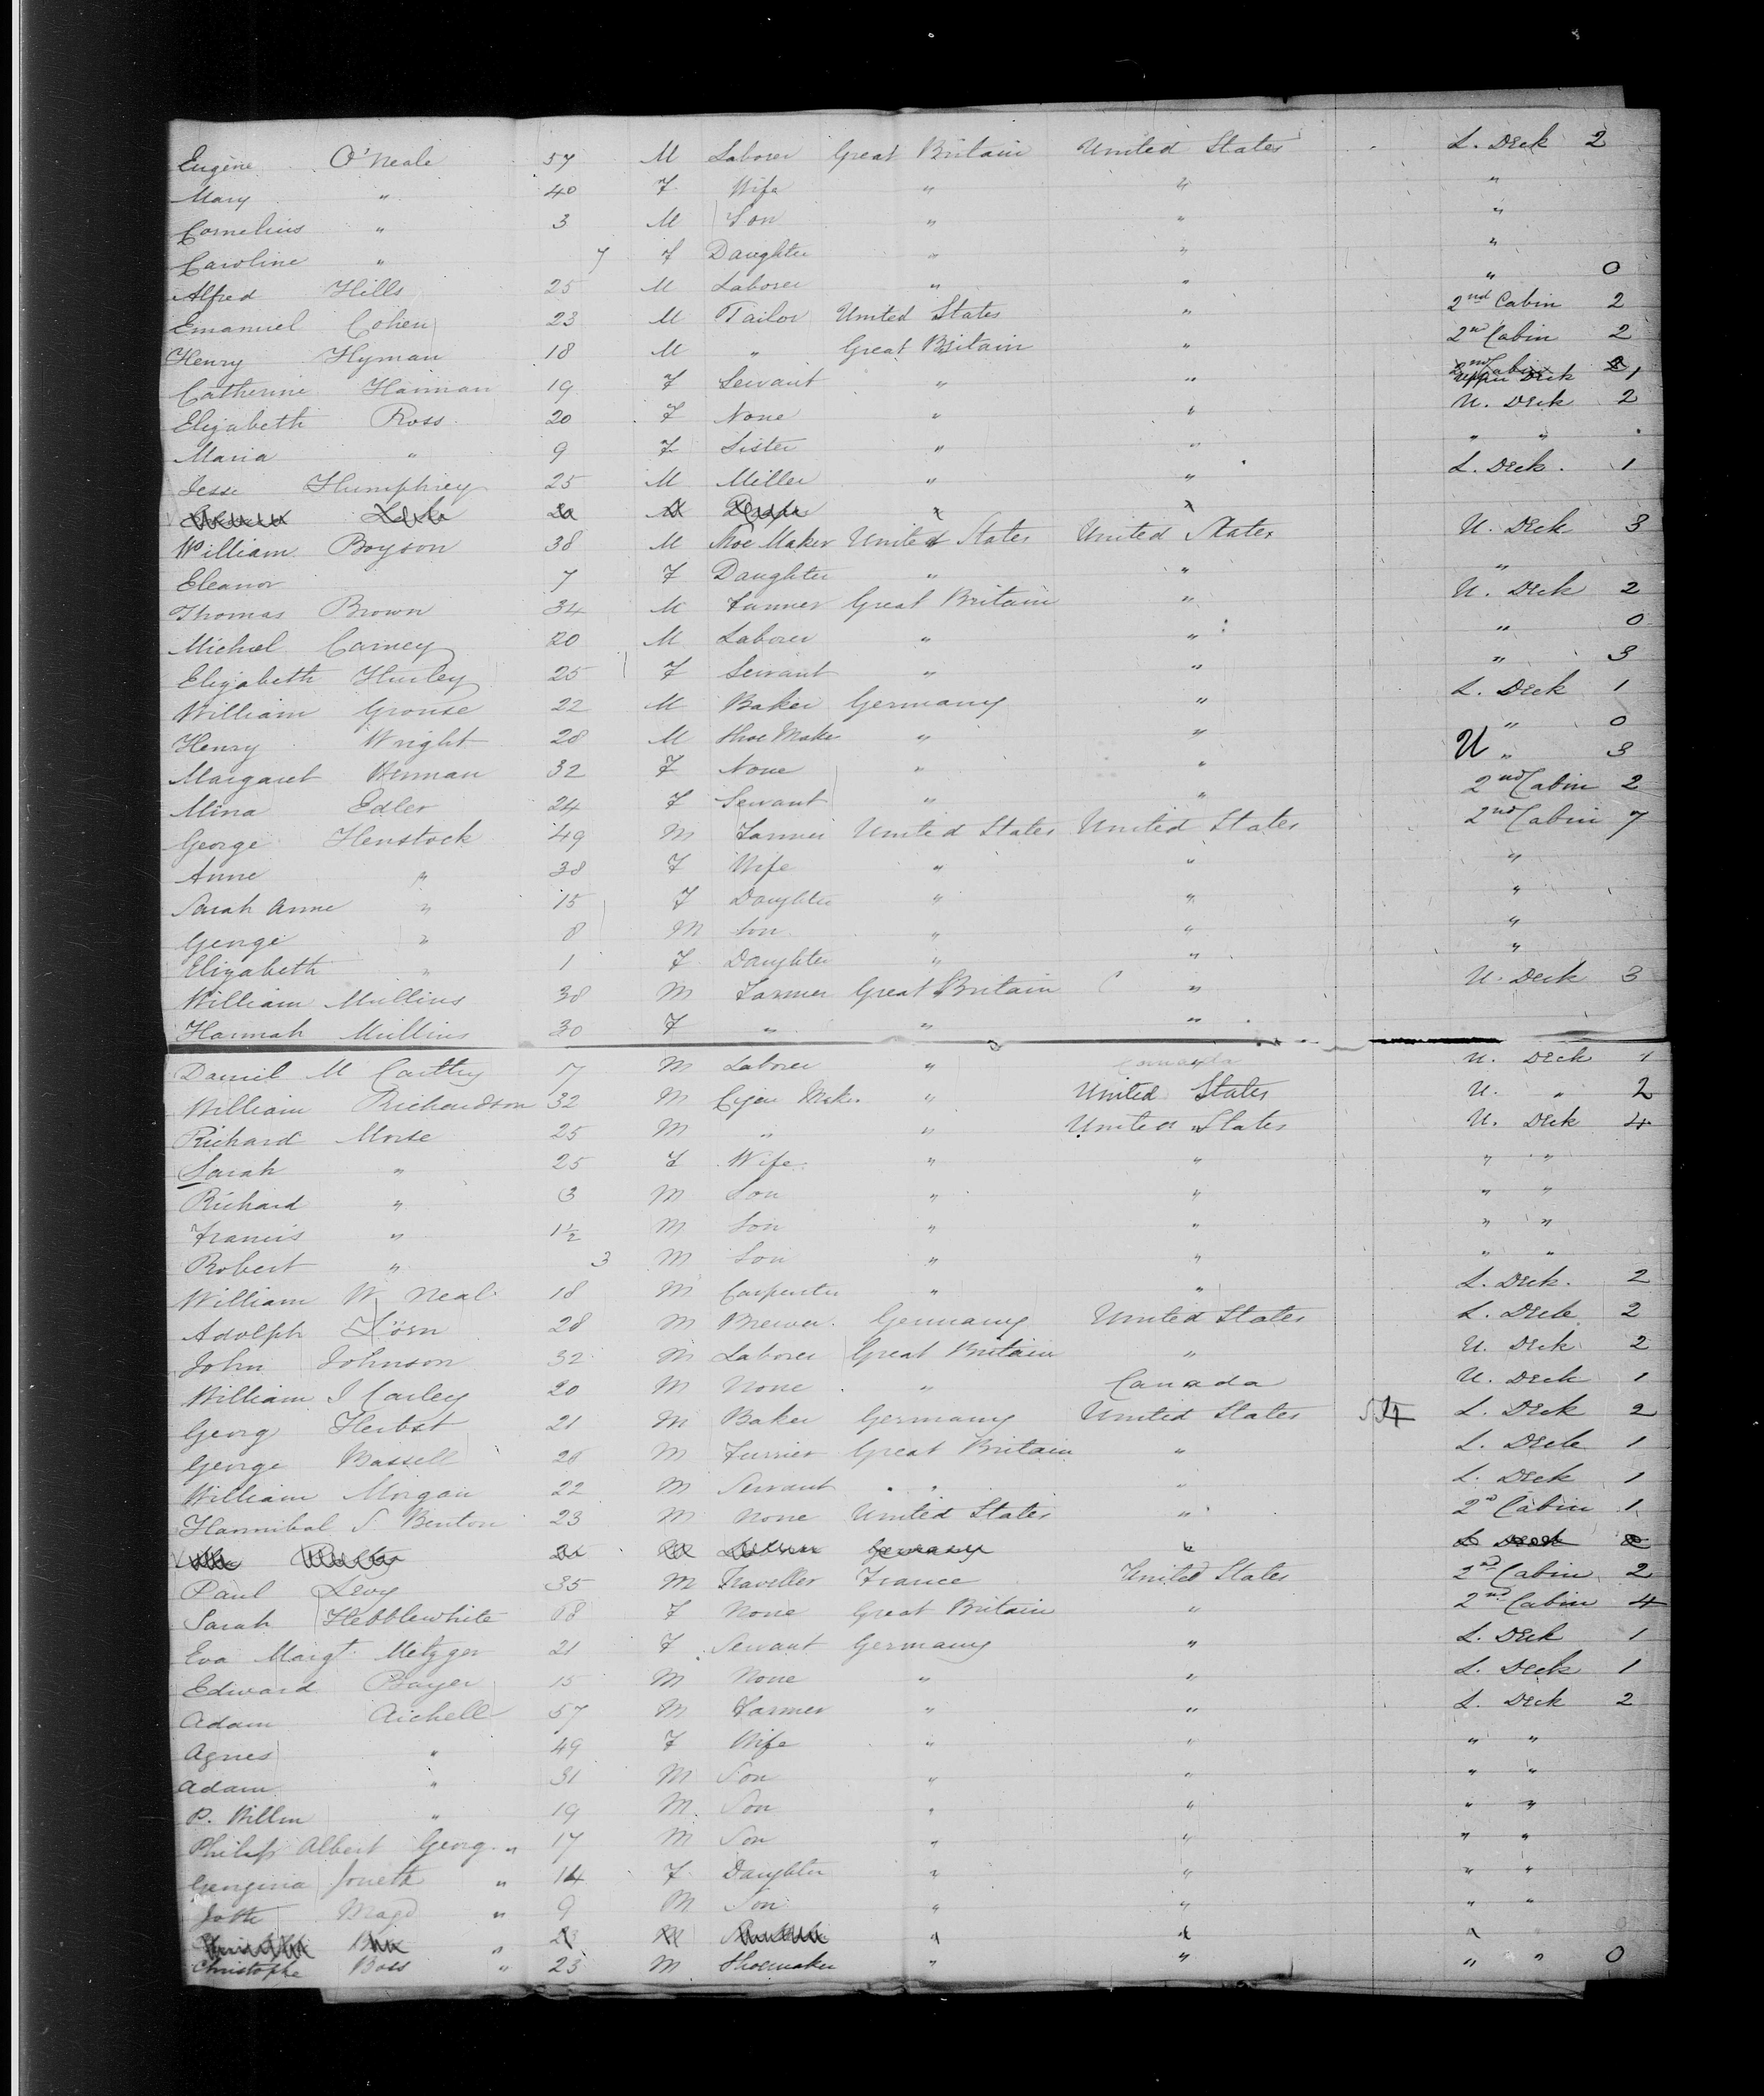 Eugene O'Neale 57 M Laborer Great Britain United States L. Deck 2
Mary " 40 F Wife " " "
Cornelius " 3 M Son " " "
Caroline " 7 F Daughter " " "
Alfred Hills 25 M Laborer " " " 0
Emanuel Cohen 23 M Tailor United States " 2nd Cabin 2
Henry Hyman 18 M " Great Britain " 2nd Cabin 2
Catherine Haiman 19 F Servant " " Upper Deck 1
Elizabeth Ross 20 F None " " U. Deck 2
Maria " 9 F Sister " " " "
Jesse Humphrey 25 M Miller " " L. Deck. 1
William Boyson 38 M Shoe Maker United States United States U. Deck 3
Eleanor 7 F Daughter " " "
Thomas Brown 34 M Farmer Great Britain " U. Deck 2
Michael Carney 20 M Laborer " " " 0
Elizabeth Hurley 25 F Servant " " " 3
William Grouse 22 M Baker Germany " L. Deck 1
Henry Wright 28 M Shoe Make " " " 0
Margaret Berman 32 F None " " U " 3
Mina Edler 24 F Servant " " 2nd Cabin 2
George Henstock 49 M Farmer United States United States 2nd Cabin 7
Anne " 38 F Wife " " "
Sarah Anne " 15 F Daughter " " "
George " 8 M Son " " "
Elizabeth " 1 F Daughter " " "
William Mullins 38 M Farmer Great Britain " U. Deck 3
Hannah Mullins 30 F " " "
Daniel M Carthy 7 M Laborer " Canada U. Deck 1
William Richardson 32 M Cigar Make. " United States U. " 2
Richard Morse 25 M " " United States U. Deck 4
Sarah " 25 F Wife " " " "
Richard " 3 M Son " " " "
Francis " 1½ M Son " " " "
Robert " 3 M Son " " " "
William W Neal 18 M Carpenter " " L. Deck. 2
Adolph Dörn 28 M Brewer. Germany United States L. Deck 2
John Johnson 32 M Laborer Great Britain " U. Deck 2
William J Carley 20 M None " Canada U. Deck 1
Georg Herbst 21 M Baker Germany United States L. Deck 2
George Bassell 28 M Furrier Great Britain " L. Deck 1
William Morgan 22 M Servant " " " L. Deck 1
Hannibal S Benton 23 M None United States " 2d Cabin 1
Paul Levy 35 M Traveller France United States 2nd Cabin 2
Sarah Hebblewhite 68 F None Great Britain " 2nd Cabin 4
Eva Margt. Metzger 21 F Servant Germany " L. Deck 1
Edward Bayer 15 M None " " L. Deck 1
Adam Aichell 57 M Farmer " " L. Deck 2
Agnes " 49 F Wife " " " "
Adam " 31 M Son " " " "
P. Willm " 19 M. Son " " " "
Philip Albert Georg " 17 M Son " " " "
Georgina " 14 F Daughter " " " "
Magd " 9 M Son " " " "
Christophe Boss " 23 M Shoemaker " " " " 0